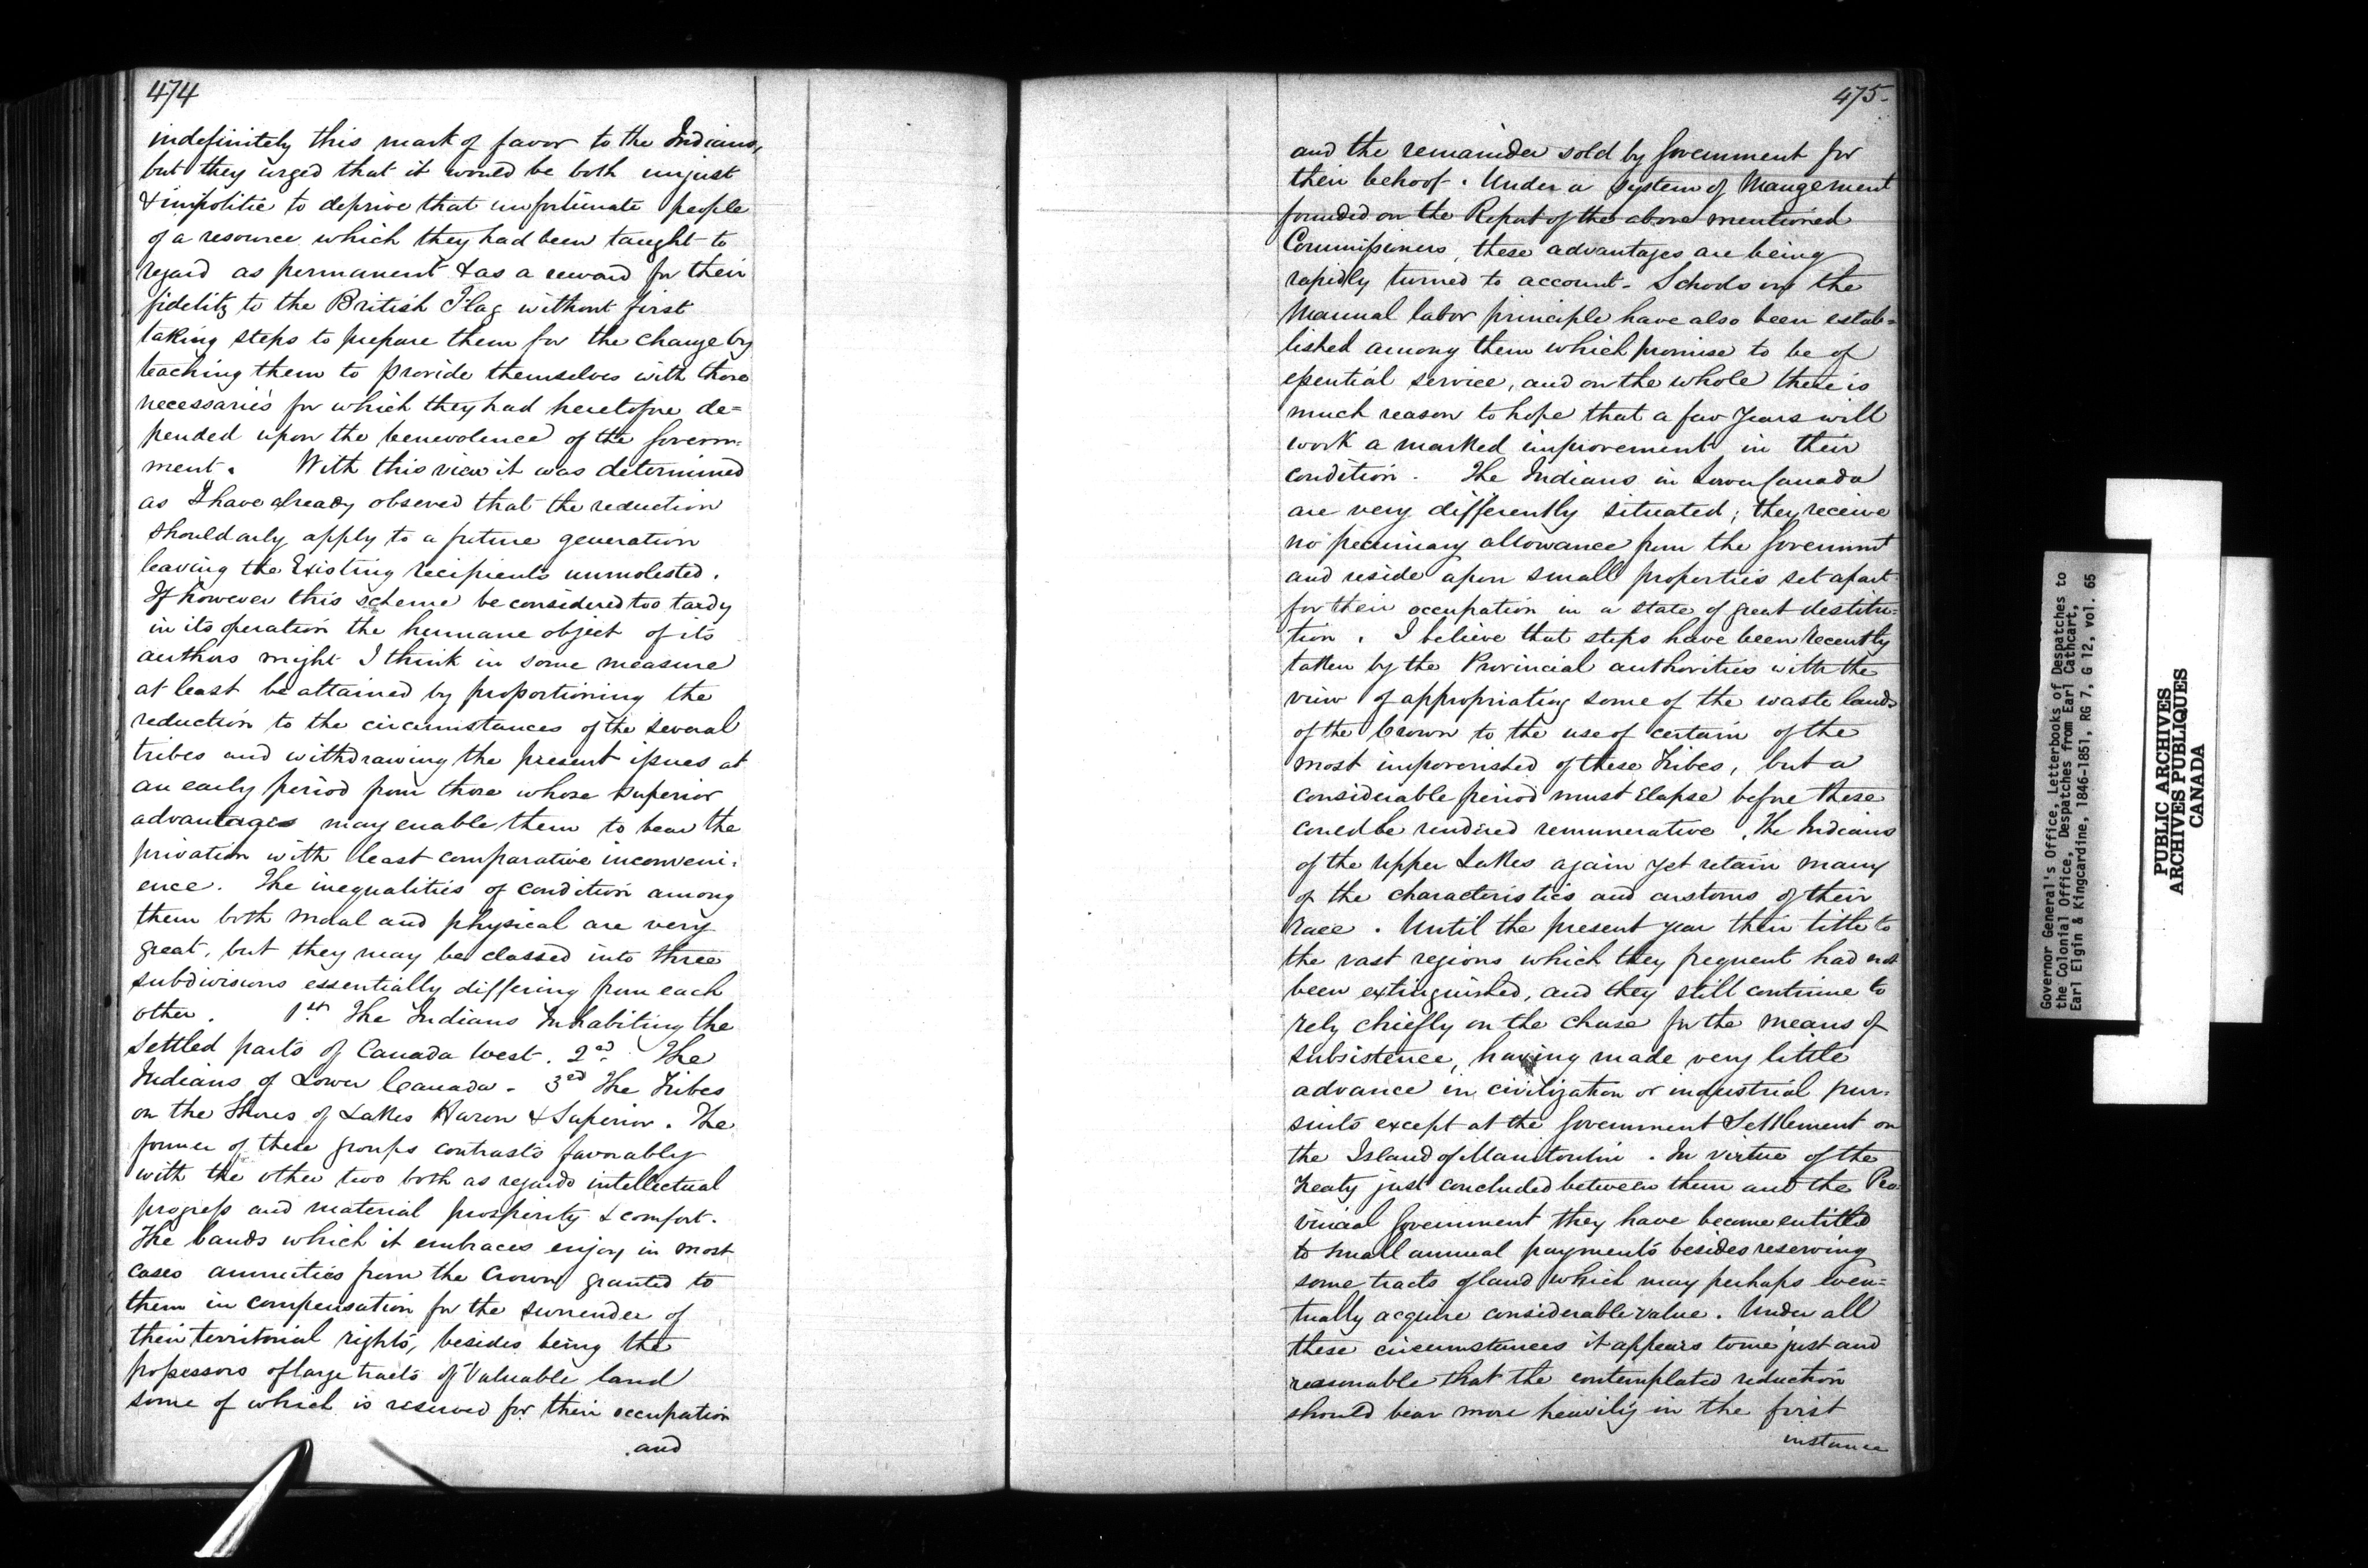 474
indefinitely this mark of favor to the Indians,
but they urged that it would be both unjust
& impolitic to deprive that unfortunate people
of a resource which they had been taught to
regard as permanent & as a reward for their
fidelity to the British Flag without first
taking steps to prepare them for the change by
teaching them to provide themselves with those
necessaries for which they had heretofore de=
pended upon the benevolence of the Govern=
ment. With this view it was determined
as I have already observed that the reduction
should only apply to a future generation
leaving the Existing recipients unmolested.
If however this scheme be considered too tardy
in its operation the humane object of its
authors might I think in some measure
at least be attained by proportioning the
reduction to the circumstances of the several
tribes and withdrawing the present issues at
an early period from those whose superior
advantages may enable them to bear the
privation with least comparative inconveni=
ence. The inequalities of condition among
them both moral and physical are very
great, but they may be classed into three
subdivisions essentially differing from each
other. 1st The Indians Inhabiting the
Settled parts of Canada West. 2nd The
Indians of Lower Canada. 3rd The Tribes
on the Shores of Lakes Huron & Superior. The
former of these groups contrasts favorably
with the other two both as regards intellectual
progress and material prosperity & comfort.
The bands which it embraces enjoy in most
cases annuities from the Crown granted to
them in compensation for the surrender of
their territorial rights, besides being the
possessors of large tracts of Valuable land
some of which is reserved for their occupation
and
475.
and the remainder sold by Government for
their behoof. Under a system of Mangement
founded on the Report of the above mentioned
Commissioners, these advantages are being
rapidly turned to account. Schools on the
Manual labor principle have also been estab=
lished among them which promise to be of
essential service, and on the whole there is
much reason to hope that a few Years will
work a marked improvement in their
condition. The Indians in Lower Canada
are very differently situated; they receive
no pecuniary allowance from the Government
and reside upon small properties set apart
for their occupation in a state of great destitu=
tion. I believe that steps have been recently
taken by the Provincial authorities with the
view of appropriating some of the waste lands
of the Crown to the use of certain of the
most impoverished of these Tribes, but a
considerable period must Elapse before these
could be rendered remunerative. The Indians
of the upper Lakes again yet retain many
of the characteristics and customs of their
Race. Until the present year their title to
the vast regions which they frequent had not
been extinguished, and they still continue to
rely chiefly on the chase for the means of
subsistence, having made very little
advance in civilization or industrial pur=
suits except at the Government Settlement on
the Island of Manitoulin. In virtue of the
Treaty just concluded between them and the Pro
vincial Government they have become entitled
to small annual payments besides reserving
some tracts of land which may perhaps even=
tually acquire considerable value. Under all
these circumstances it appears to me just and
reasonable that the contemplated reduction
should bear more heavily in the first
instance
Governor General's Office, Letterbooks of Despatches to
the Colonial Office, Despatches from Earl Cathcart,
Earl Elgin & Kingcardine, 1846-1851, RG 7, G 12, vol. 65
PUBLIC ARCHIVES
ARCHIVES PUBLIQUES
CANADA